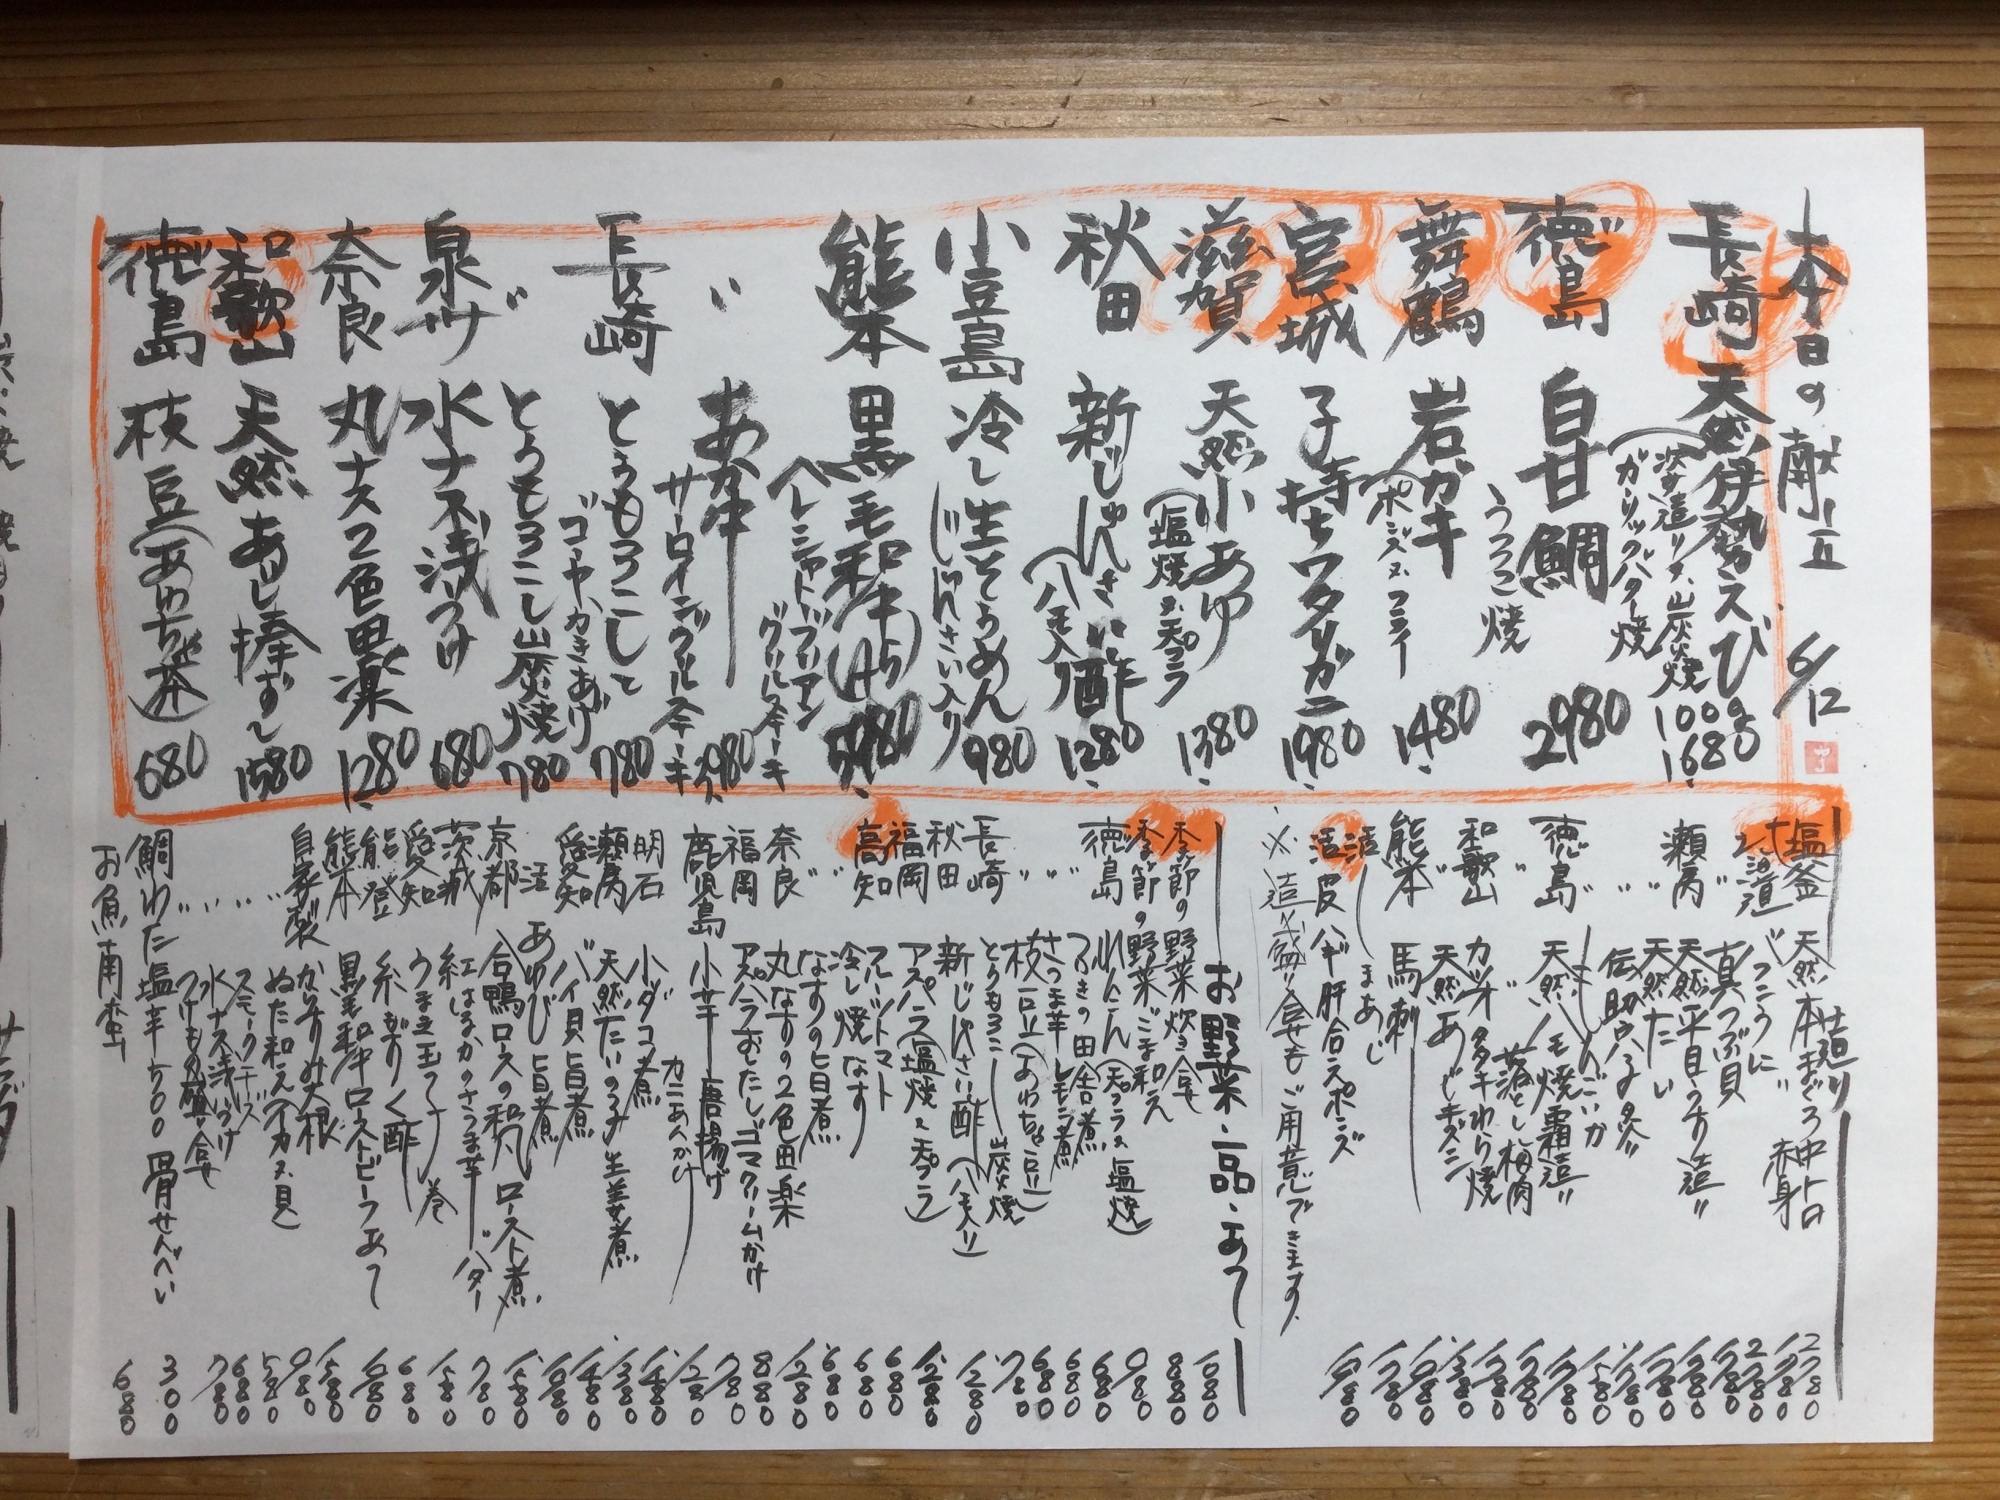 本日の献立 6/12
長崎 天然伊勢えび 100g 1680
(姿造り又、炭火焼
ガーリックバター焼
徳島 白甘鯛 2980
うろこ焼
舞鶴 岩ガキ 1480
(ポンズ又、フライ
宮城 子持ちワタリガニ 1980
滋賀 天然小あゆ 1380
(塩焼又、天プラ
秋田 新じゅんさい酢 1280
(ハモ入り
小豆島 冷し生そうめん 980
じゅんさい入り
熊本 黒毛和牛(A5) 5980
ヘレシャトーブリアン
グリルステーキ
〃 あか牛 3980
サーロイングリルステーキ
長崎 とうもろこしと 780
ゴーヤ、かきあげ
〃 とうもろこし炭火焼 780
泉州 水ナス浅つけ 680
奈良 丸ナス2色田楽 1280
和歌山 天然あじ棒ずし 1580
徳島 枝豆(あわちゃ茶) 680
造り
塩釜 天然本まぐろ中トロ 2780
赤身 1780
北海道 バフンうに 2780
〃 真つぶ貝 1780
瀬戸 天然平目うす造り 1780
〃 天然たい 1780
〃 伝助穴子
徳島
〃 天然ハモ焼霜造り 1780
落とし梅肉 1780
和歌山 カツオタタキわら焼
〃 天然あじキズシ
熊本 馬刺
活〆 まあじ
活皮ハギ肝合え ポンズ 1980
※造り盛り合せもご用意できます。
お野菜・一品・あて
季節の野菜炊き合せ 1080
季節の野菜ごま和え 880
徳島 れんこん(天プラ又塩焼) 980
〃 ふきの田舎煮 680
〃 さつま芋レモン煮 680
〃 枝豆(あわちゃ豆) 680
長崎 とうもろこし炭火焼 780
秋田 新じゅんさい酢(ハモ入り) 1280
福岡 アスパラ(塩焼又天プラ) 1280
高知 フルーツトマト 680
〃 冷し焼なす 680
〃 なすの旨煮 680
奈良 丸なすの2色田楽 1280
福岡 アスパラおひたしゴマクリームかけ 880
鹿児島 小芋 唐揚げ 780
カニあんかけ 1280
明石 小ダコ煮 1480
瀬戸 天然たいの子生姜煮 1380
愛知 バイ貝旨煮 1480
活 あわび旨煮
京都 合鴨ロースの和風ロースト煮 1580
茨城 紅はるかのさつま芋バター 780
愛知 うまき玉子巻 1580
能登 糸もずく酢 680
熊本 黒毛和牛ローストビーフあて 1680
自家製 からすみ大根 1580
〃 ぬた和え(イカ又貝) 980
〃 スモークチーズ 580
〃 水ナス浅づけ 680
〃 つけもの盛り合せ 780
鯛わた塩辛500 骨せんべい 300
お魚南蛮 680